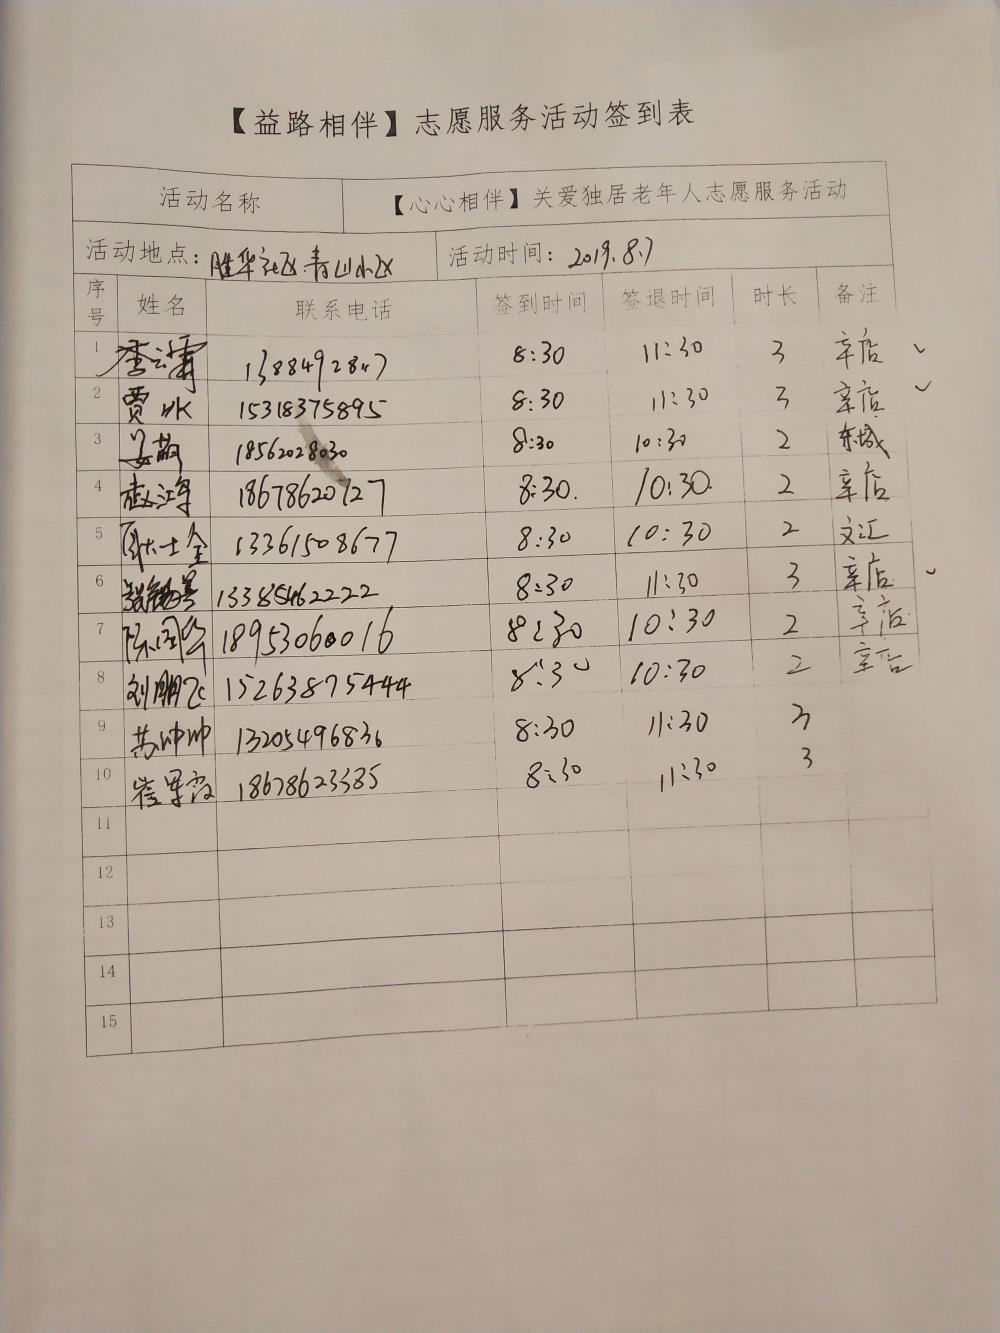 【益路相伴】志愿服务活动签到表
活动名称 【心心相伴】关爱独居老年人志愿服务活动
活动地点： 胜华社区青山小区 活动时间： 2019.8.7
序号 姓名 联系电话 签到时间 签退时间 时长 备注
1 季云霄 8:30 11:30 3 辛店
2 贾冰 15318375895 8:30 11:30 3 辛店
3 18562028030 8:30 10:30 2 东城
4 赵江军 18678620727 8:30. 10:30. 2 辛店
5 13361508677 8:30 10:30 2 文汇
6 13385462222 8:30 11:30 3 辛店
7 18953060016 8:30 10:30 2 辛店
8 刘鹏飞 15263875444 8:30 10:30 2 辛店
9 苏帅帅 13205496836 8:30 11:30 3
10 崔军霞 18678623385 8:30 11:30 3
11
12
13
14
15